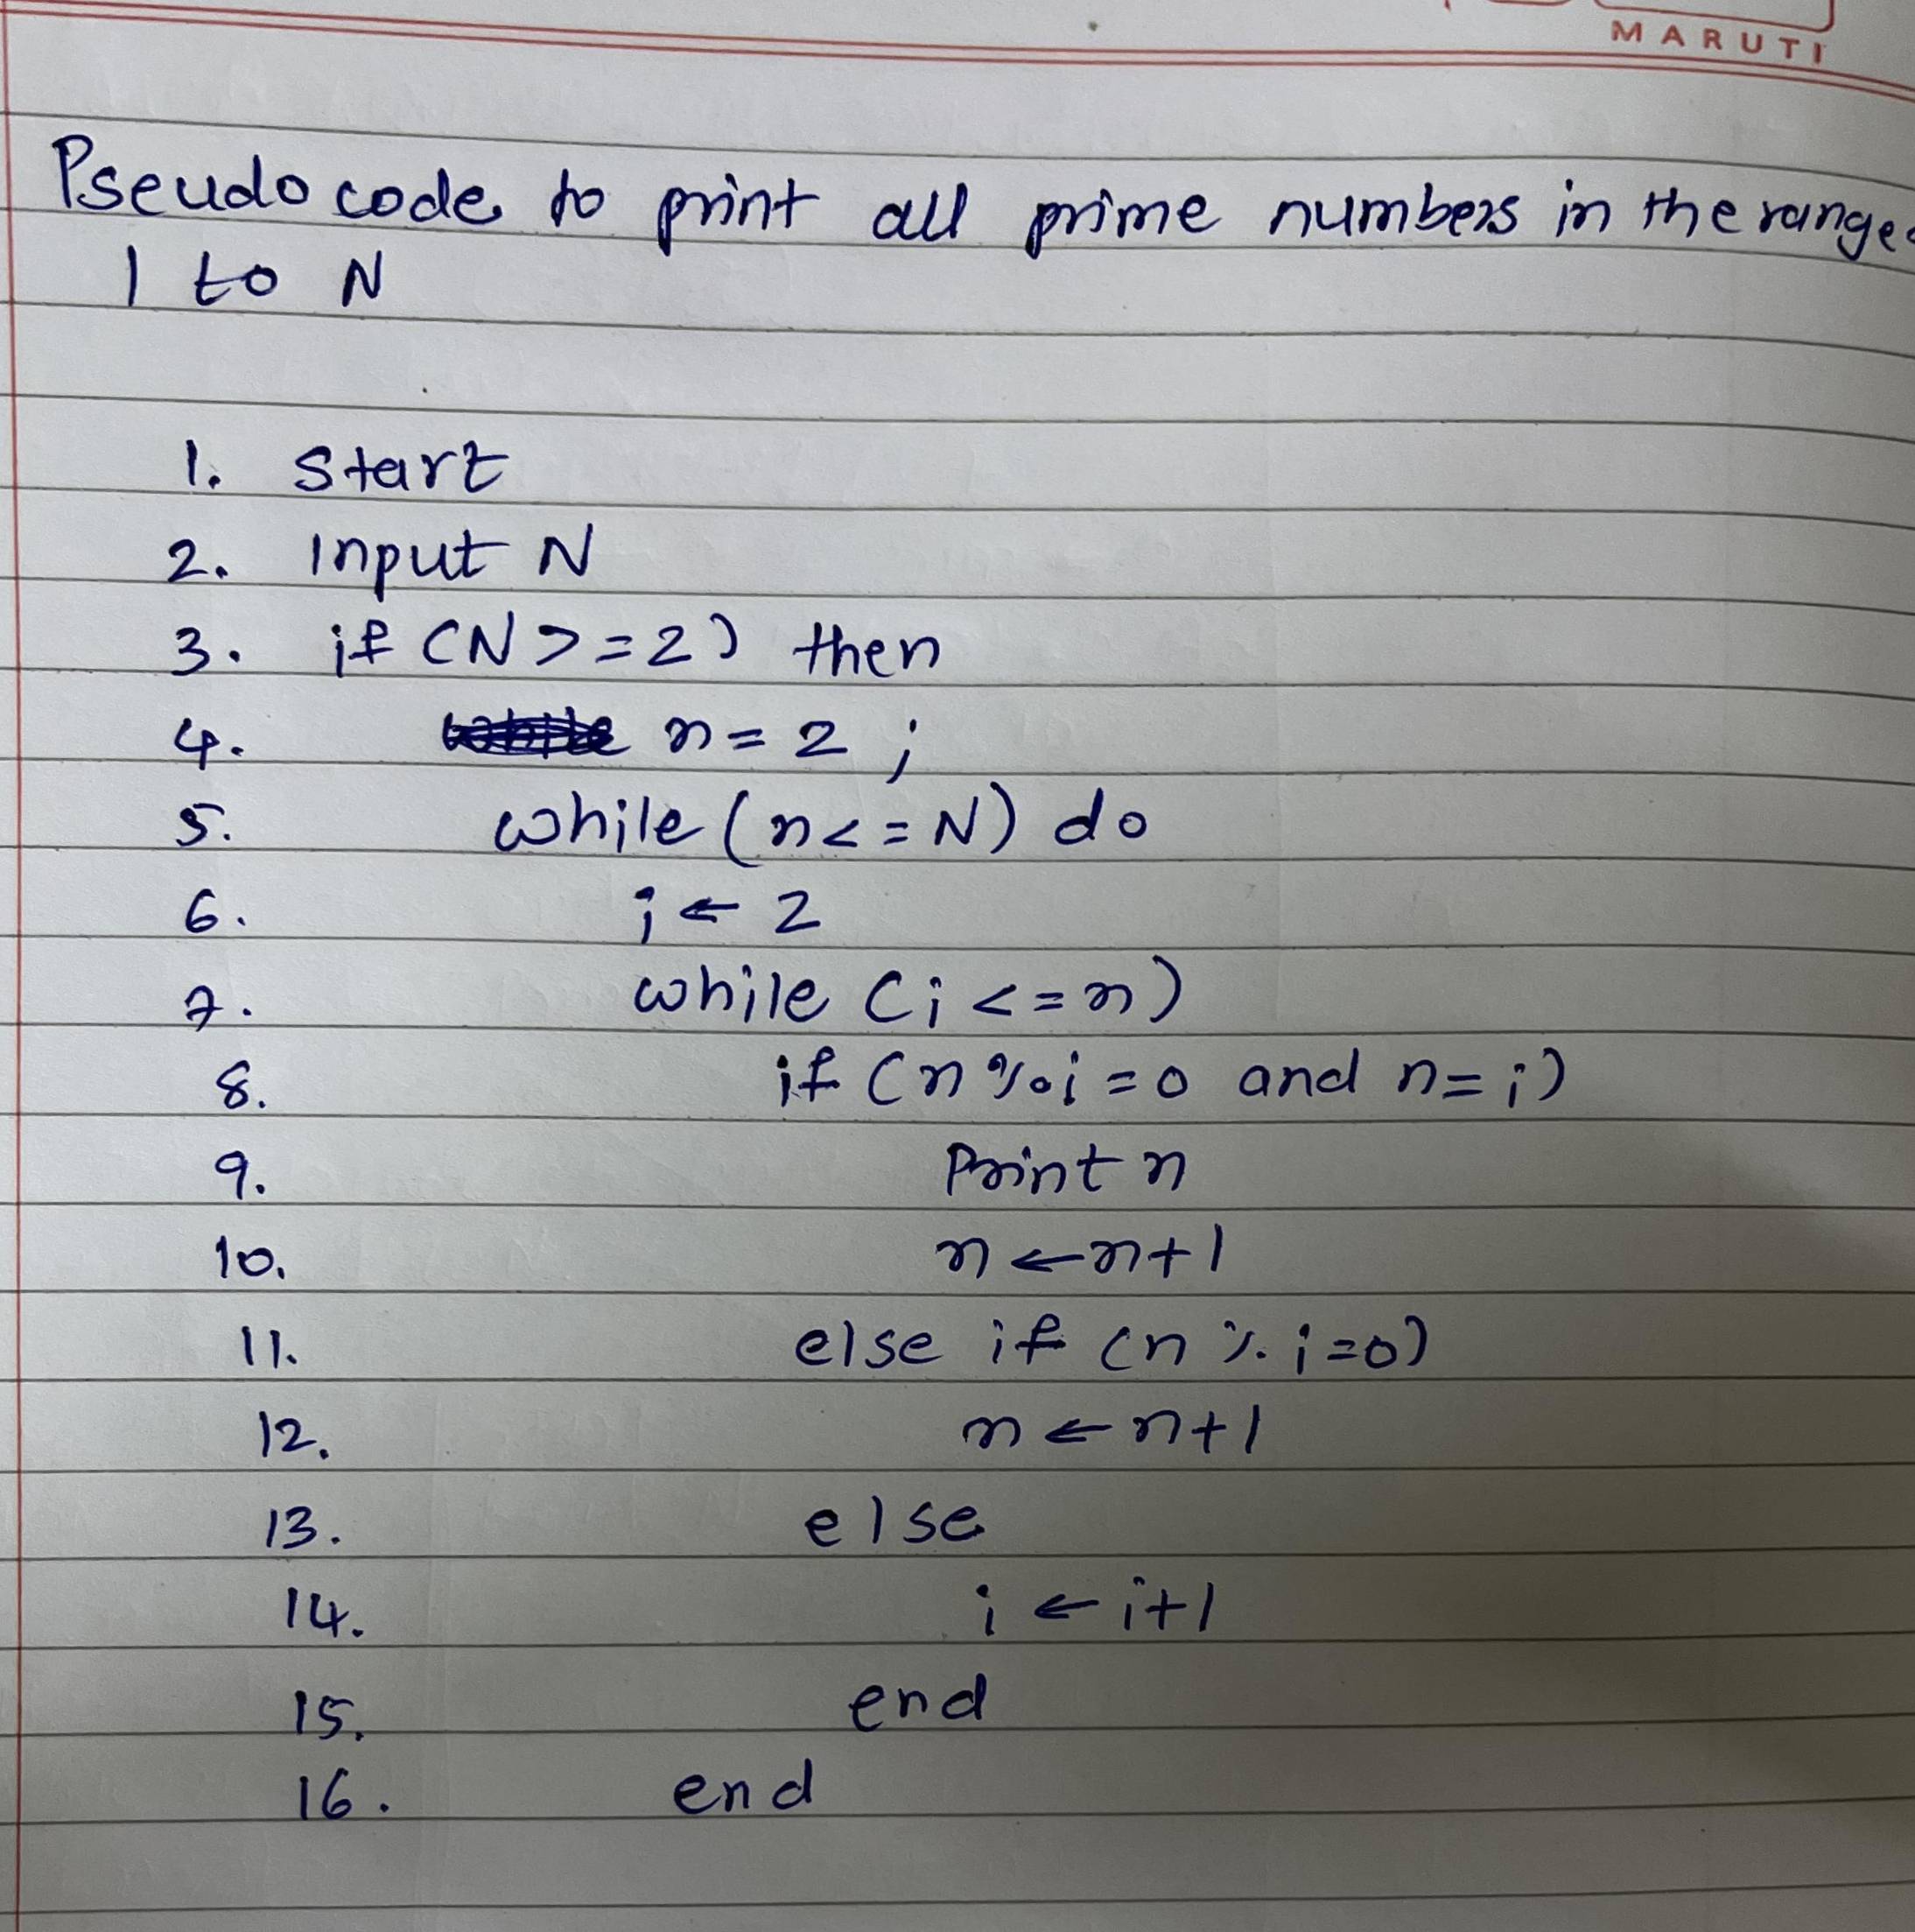 MARUTI
Pseudo code to print all prime numbers in the range
1 to N
1. Start
2. Input N
3. if (N>=2) then
4. n=2;
5. while (n<=N) do
6. i ← 2
7. while (i <= n)
8. if (n % i = 0 and n = i)
9. Print n
10. n ← n+1
11. else if (n % i = 0)
12. n ← n+1
13. else
14. i ← i+1
15. end
16. end